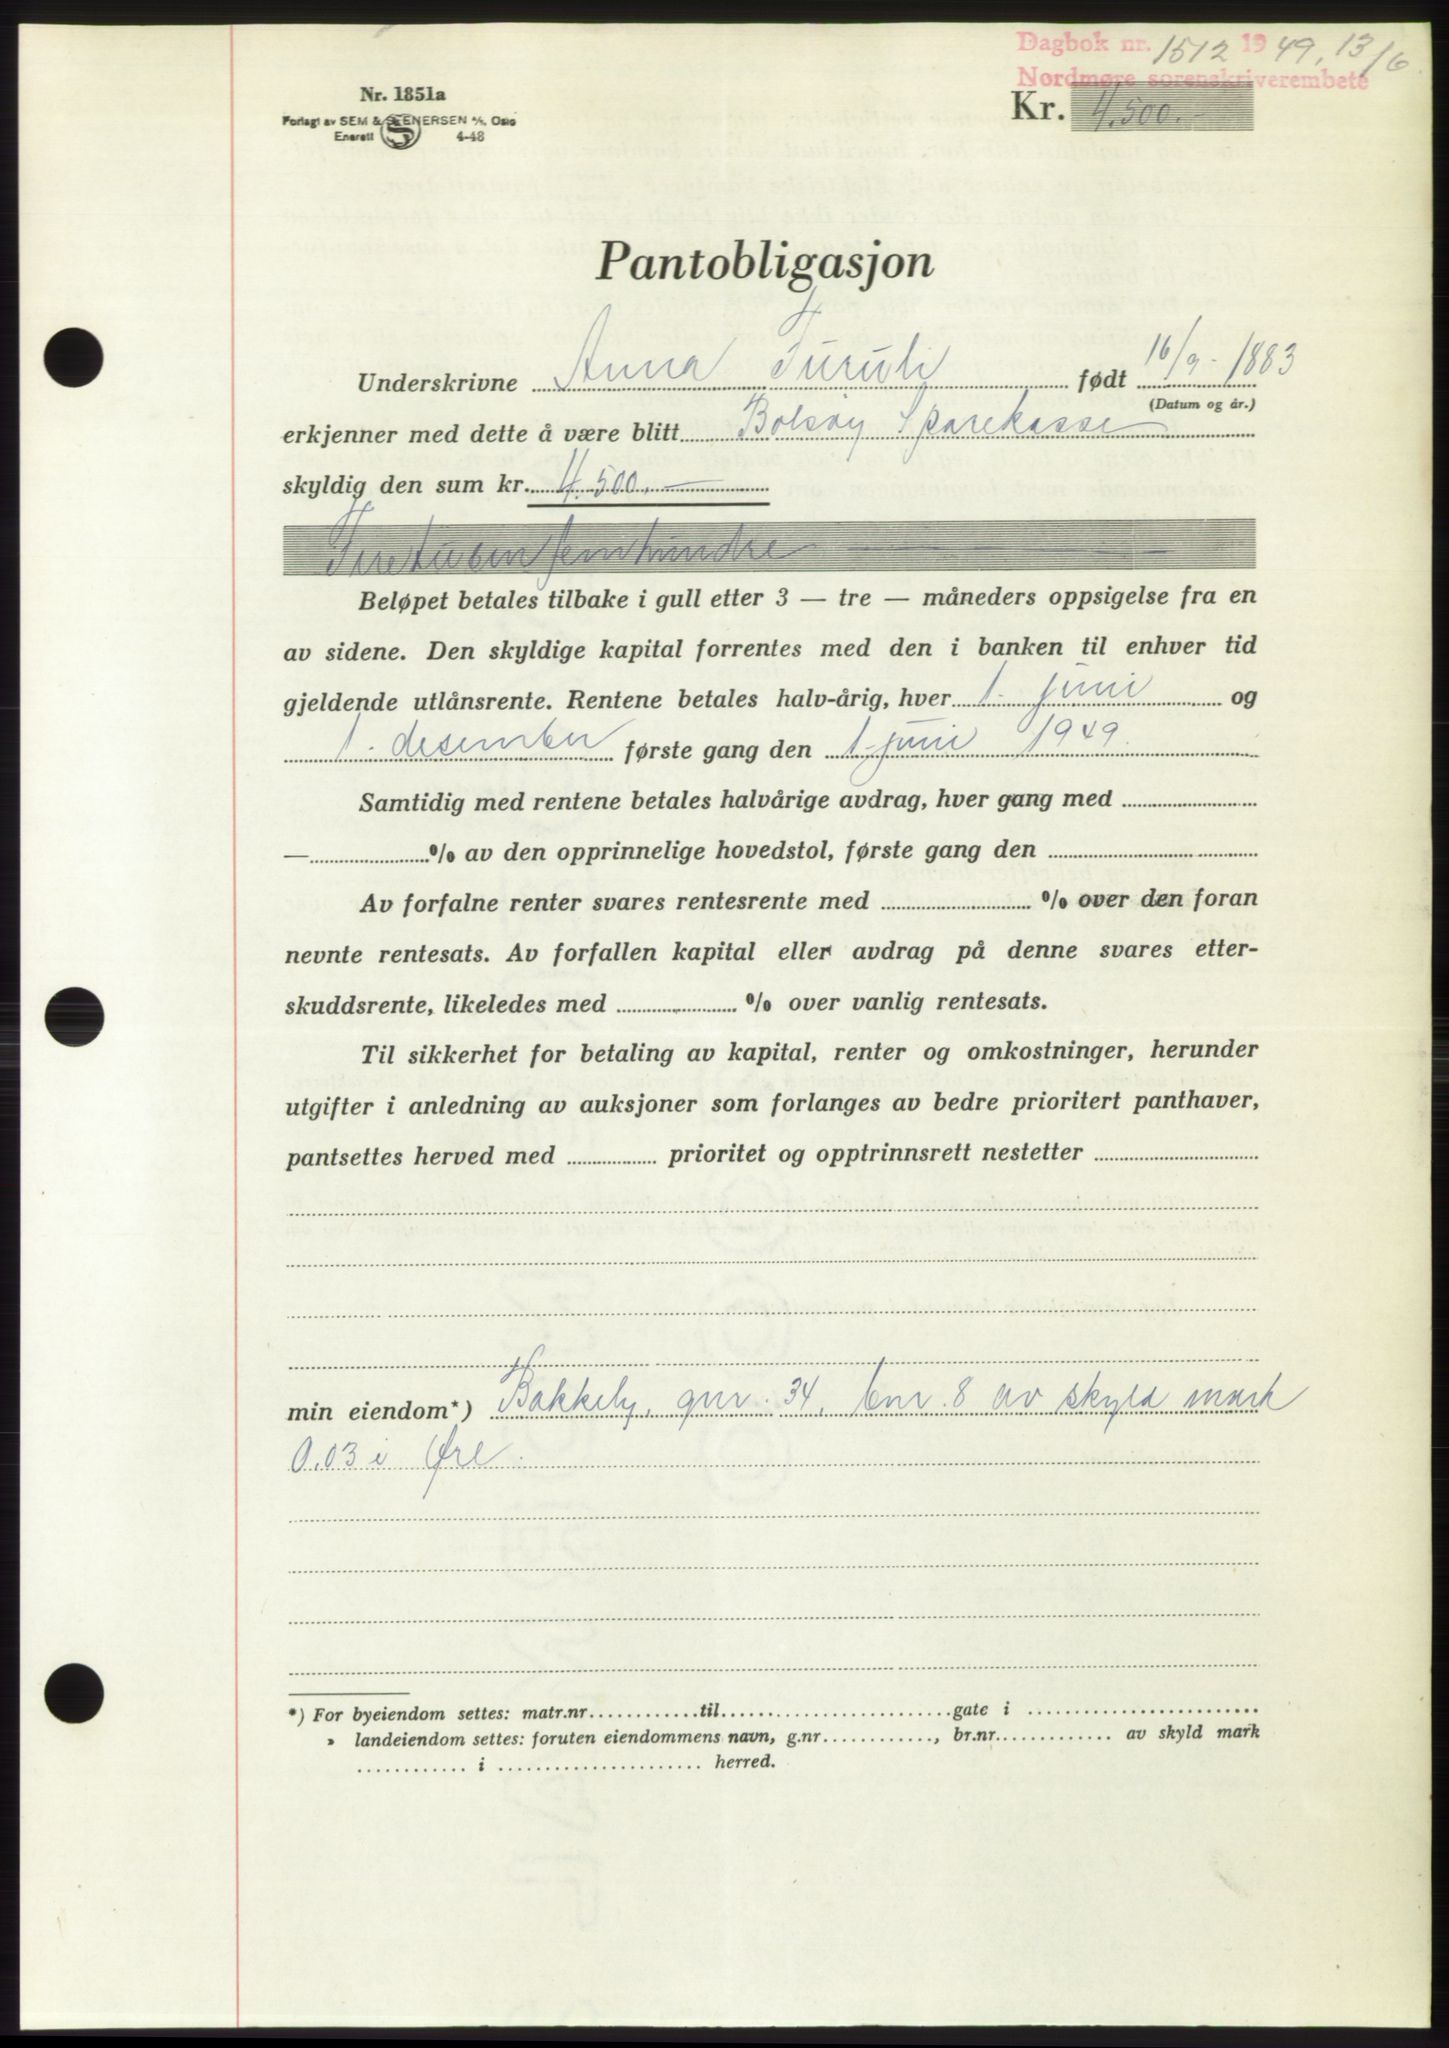 Dagbok nr. 1512 1949, 13/6
Nordmøre sorenskriverembete
Nr. 1851a
Forlagt av SEM & STENERSEN A/S, Oslo
Enerett 4-48
Kr. 4.500.-
Pantobligasjon
Underskrivne Anna Furuli født 16/9-1883
(Datum og år.)
erkjenner med dette å være blitt Bolsøy Sparekasse
skyldig den sum kr. 4.500.—
Firetusenfemhundre — — —
Beløpet betales tilbake i gull etter 3 — tre — måneders oppsigelse fra en
av sidene. Den skyldige kapital forrentes med den i banken til enhver tid
gjeldende utlånsrente. Rentene betales halv-årig, hver 1. juni og
1. desember første gang den 1. juni 1949.
Samtidig med rentene betales halvårige avdrag, hver gang med
— % av den opprinnelige hovedstol, første gang den
Av forfalne renter svares rentesrente med % over den foran
nevnte rentesats. Av forfallen kapital eller avdrag på denne svares etter-
skuddsrente, likeledes med % over vanlig rentesats.
Til sikkerhet for betaling av kapital, renter og omkostninger, herunder
utgifter i anledning av auksjoner som forlanges av bedre prioritert panthaver,
pantsettes herved med prioritet og opptrinnsrett nestetter
min eiendom*) Bakkely, gnr. 34, bnr. 8 av skyld mark
0.03 i Øre.
*) For byeiendom settes: matr.nr............til........................gate i ........................
» landeiendom settes: foruten eiendommens navn, g.nr............, br.nr............ av skyld mark
............ i ...................... herred.